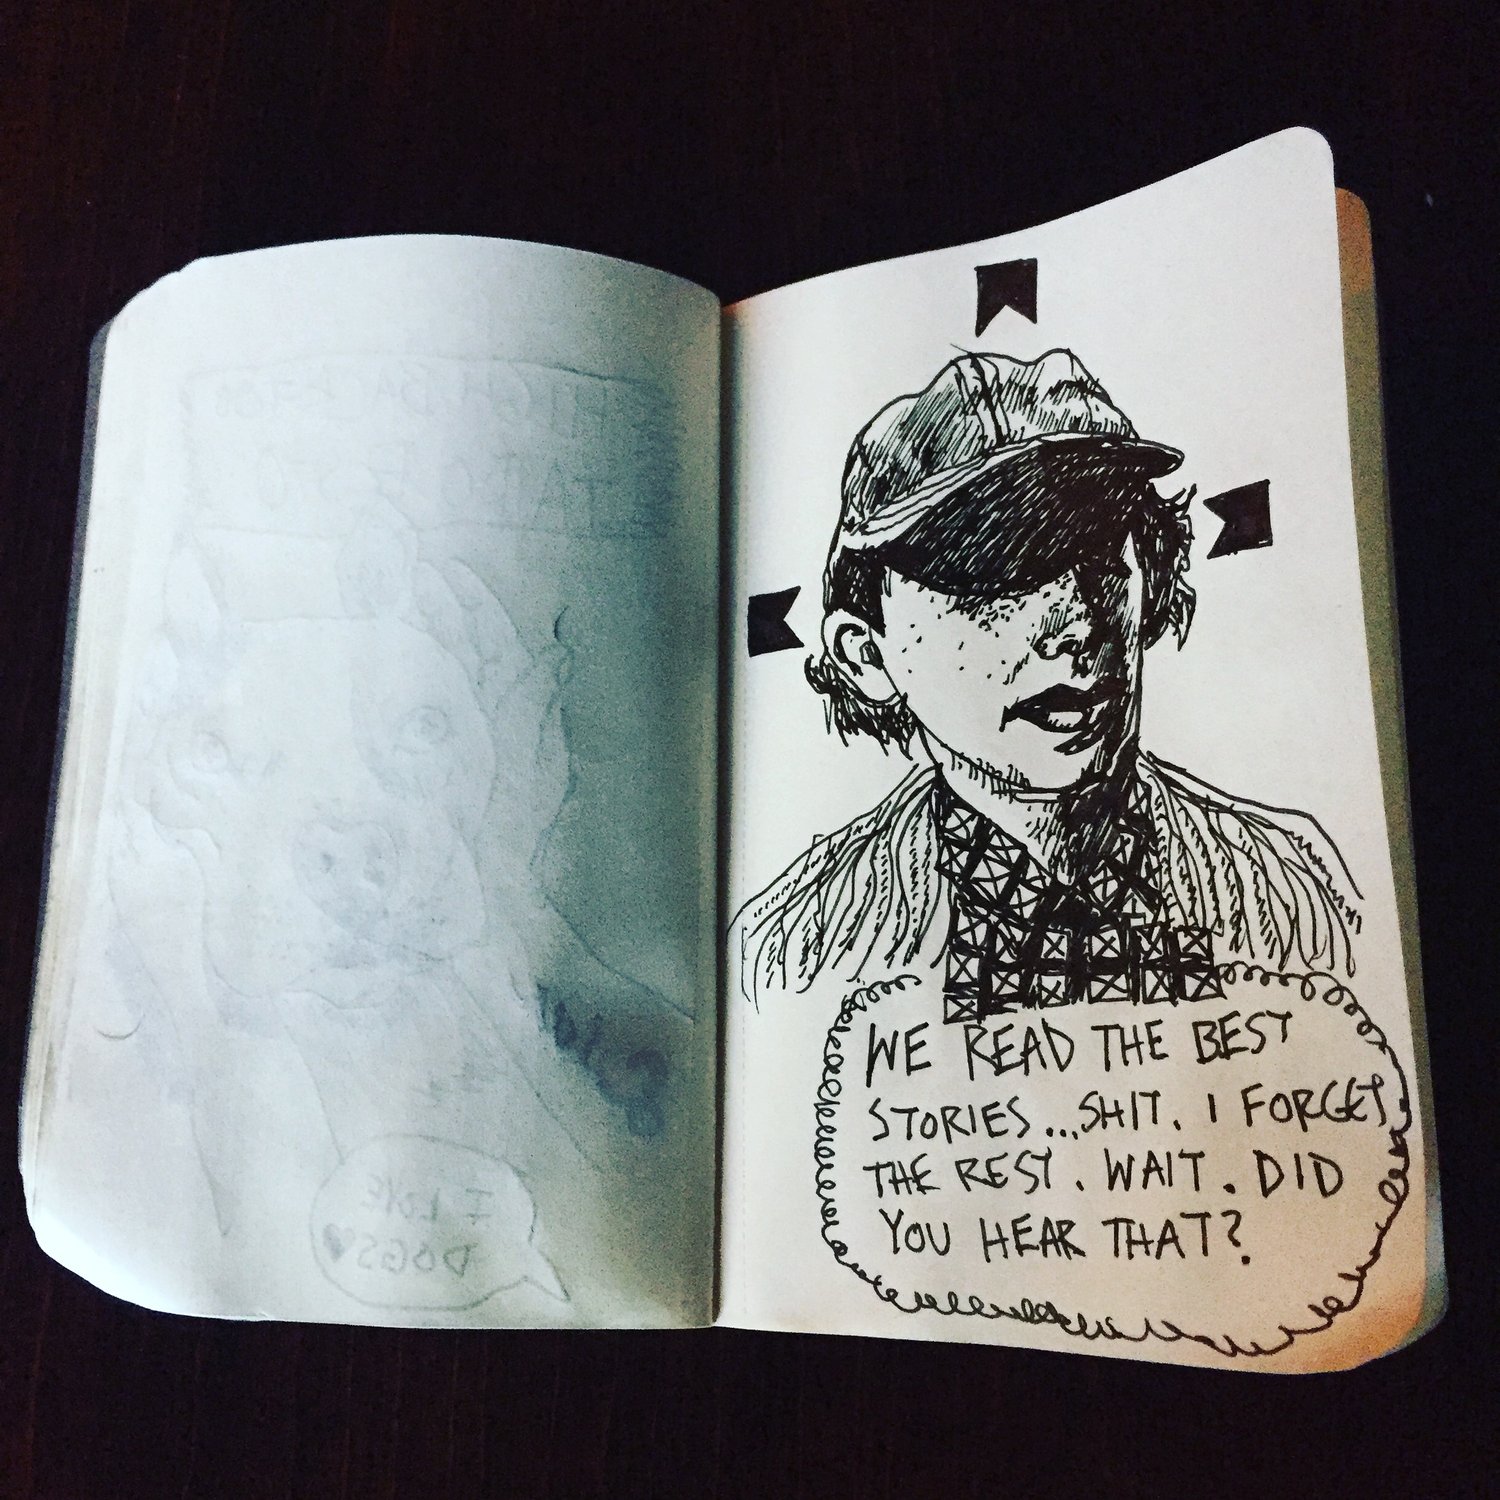 I LOVE
DOGS
WE READ THE BEST
STORIES...SHIT. I FORGET
THE REST. WAIT. DID
YOU HEAR THAT?